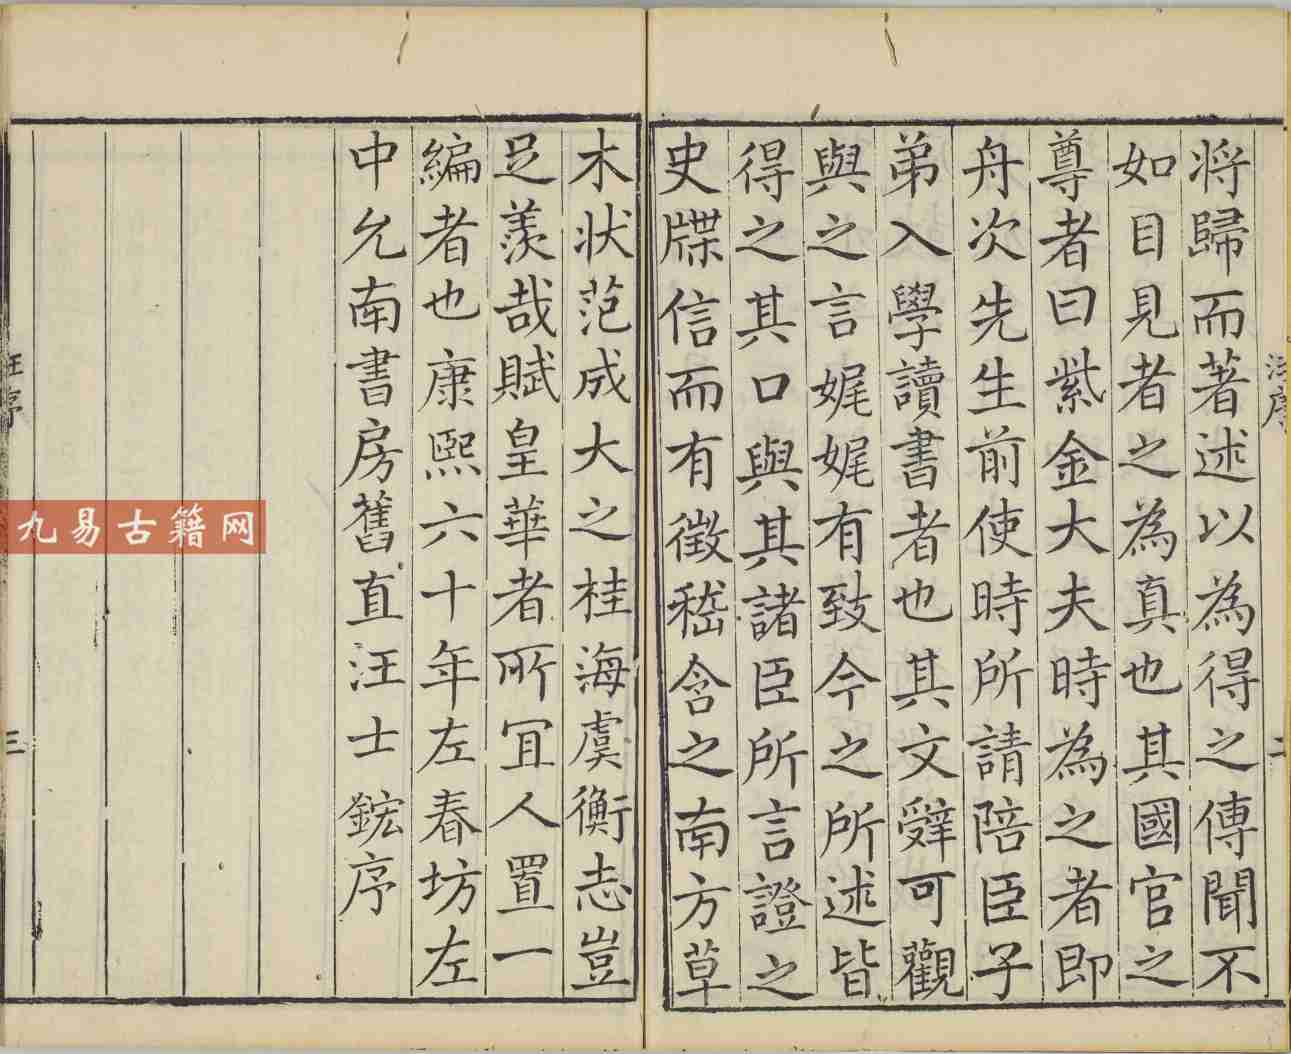 汪序
二
将歸而著述以為得之傳聞不
如目見者之為真也其國官之
尊者曰紫金大夫時為之者即
舟次先生前使時所請陪臣子
弟入學讀書者也其文辤可觀
與之言娓娓有致今之所述皆
得之其口與其諸臣所言證之
史牒信而有徵嵇含之南方草
木状范成大之桂海虞衡志豈
足羨哉賦皇華者所冝人置一
編者也康熙六十年左春坊左
中允南書房舊直汪士鋐序
汪序
三
九易古籍网